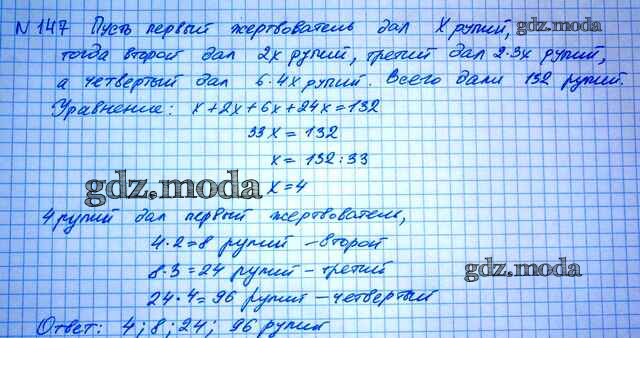 N 147 Пусть первый жертвователь дал X рупий, gdz.moda
тогда второй дал 2x рупий, третий дал 2·3x рупий,
а четвертый дал 6·4x рупий. Всего дали 132 рупий.
Уравнение: x+2x+6x+24x=132
33x = 132
x = 132:33
gdz.moda x=4
4 рупий дал первый жертвователь,
4·2=8 рупий – второй
8·3=24 рупий – третий gdz.moda
24·4=96 рупий – четвертый
Ответ: 4; 8; 24; 96 рупий